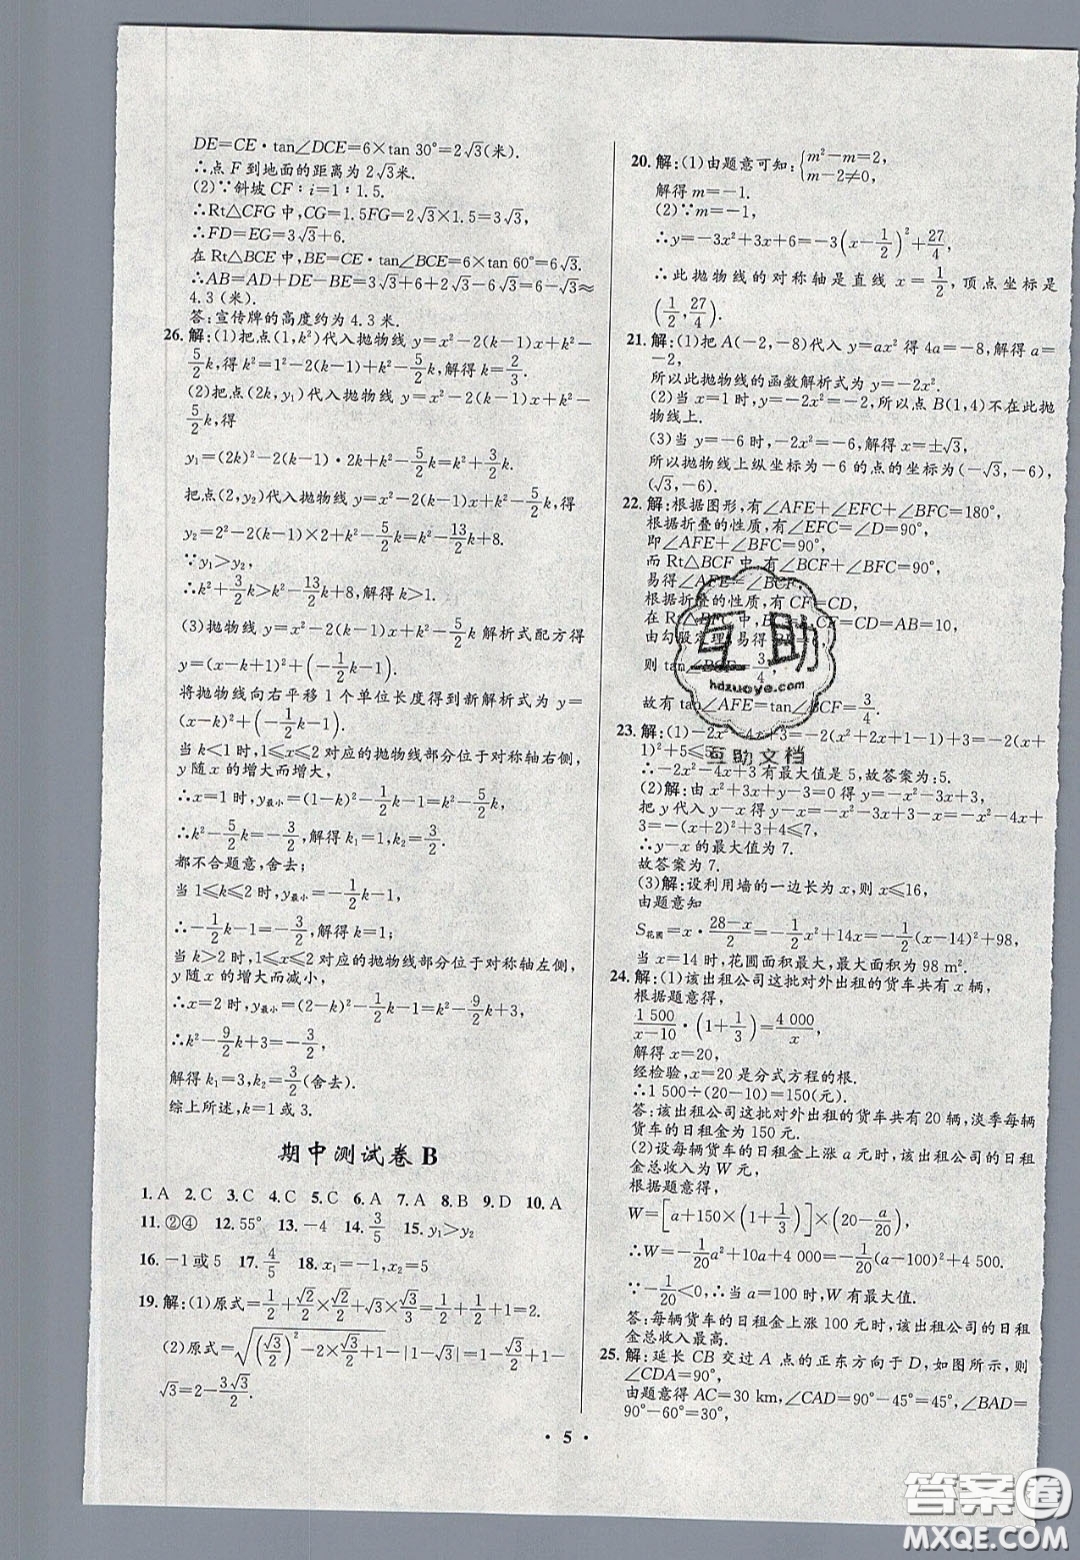 DE=CE·tan∠DCE=6×tan 30°=2√3(米).
∴点 F 到地面的距离为 2√3米.
(2)∵斜坡 CF:i=1:1.5.
∴Rt△CFG 中,CG=1.5FG=2√3×1.5=3√3,
∴FD=EG=3√3+6.
在 Rt△BCE 中,BE=CE·tan∠BCE=6×tan 60°=6√3.
∴AB=AD+DE-BE=3√3+6+2√3-6√3=6-√3≈
4.3 (米).
答:宣传牌的高度约为 4.3 米.
26. 解:(1)把点(1,k²)代入抛物线 y=x²-2(k-1)x+k²-
5/2k,得 k²=1²-2(k-1)+k²-5/2k,解得 k=2/3.
(2)把点(2k,y₁)代入抛物线 y=x²-2(k-1)x+k²-
5/2k,得
y₁=(2k)²-2(k-1)·2k+k²-5/2k=k²+3/2k.
把点(2,y₂)代入抛物线 y=x²-2(k-1)x+k²-5/2k,得
y₂=2²-2(k-1)×2+k²-5/2k=k²-13/2k+8.
∵y₁>y₂,
∴k²+3/2k>k²-13/2k+8,解得 k>1.
(3)抛物线 y=x²-2(k-1)x+k²-5/2k 解析式配方得
y=(x-k+1)²+(-1/2k-1)
将抛物线向右平移 1 个单位长度得到新解析式为 y=
(x-k)²+(-1/2k-1)
当 k<1 时,1≤x≤2 对应的抛物线部分位于对称轴右侧,
y 随 x 的增大而增大,
∴x=1 时,y最小=(1-k)²-1/2k-1=k²-5/2k,
∴k²-5/2k=-3/2,解得 k₁=1,k₂=3/2.
都不合题意,舍去;
当 1≤k≤2 时,y最小=-1/2k-1,
∴-1/2k-1=-3/2,解得 k=1;
当 k>2 时,1≤x≤2 对应的抛物线部分位于对称轴左侧,
y 随 x 的增大而减小,
∴x=2 时,y最小=(2-k)²-1/2k-1=k²-9/2k+3,
∴k²-9/2k+3=-3/2,
解得 k₁=3,k₂=3/2(舍去).
综上所述,k=1 或 3.
期中测试卷 B
1. A 2. C 3. C 4. C 5. C 6. A 7. A 8. B 9. D 10. A
11. ②④ 12. 55° 13. -4 14. 3/5 15. y₁>y₂
16. -1 或 5 17. 4/5 18. x₁=-1,x₂=5
19. 解:(1)原式=1/2+√2/2×√2/2+√3×√3/3=1/2+1/2+1=2.
(2)原式=√((√3/2)²-2×√3/2+1)-|1-√3|=-√3/2+1+1-
√3=2-3√3/2.
20. 解:(1)由题意可知:{m²-m=2,
m-2≠0,
解得 m=-1.
(2)∵m=-1,
∴y=-3x²+3x+6=-3(x-1/2)²+27/4
∴此抛物线的对称轴是直线 x=1/2,顶点坐标是
(1/2,27/4).
21. 解:(1)把 A(-2,-8)代入 y=ax² 得 4a=-8,解得 a=
-2,
所以此抛物线的函数解析式为 y=-2x².
(2)当 x=1 时,y=-2x²=-2,所以点 B(1,4)不在此抛
物线上.
(3)当 y=-6 时,-2x²=-6,解得 x=±√3,
所以抛物线上纵坐标为-6 的点的坐标为(-√3,-6),
(√3,-6).
22. 解:根据图形,有∠AFE+∠EFC+∠BFC=180°,
根据折叠的性质,有∠EFC=∠D=90°,
即∠AFE+∠BFC=90°,
而 Rt△BCF 中,有∠BCF+∠BFC=90°,
易得∠AFE=∠BCF,
根据折叠的性质,有 CF=CD,
在 Rt△BFC 中,CF=CD=AB=10,
由勾股定理,易得 =6,
则 tan∠BCF=3/4,
故有 tan∠AFE=tan∠BCF=3/4.
互助
hdzuoye.com
互助文档
23. 解:(1)-2x²-4x+3=-2(x²+2x+1)+3=-2(x+
1)²+5≤5,
∴-2x²-4x+3 有最大值是 5,故答案为:5.
(2)解:由 x²+3x+y-3=0 得 y=-x²-3x+3,
把 y 代入 y-x 得 y-x=-x²-3x+3-x=-x²-4x+
3=-(x+2)²+3+4≤7,
∴y-x 的最大值为 7.
故答案为 7.
(3)解:设利用墙的一边长为 x,则 x≤16,
由题意知
S花圃=x·(28-x)/2=-1/2x²+14x=-1/2(x-14)²+98,
当 x=14 时,花圃面积最大,最大为 98 m².
24. 解:(1)该出租公司这批对外出租的货车共有 x 辆,
根据题意得,
1 500/(x-10)·(1+1/3)=4 000/x,
解得 x=20,
经检验,x=20 是分式方程的根.
∴1 500÷(20-10)=150(元).
答:该出租公司这批对外出租的货车共有 20 辆,淡季每辆
货车的日租金为 150 元.
(2)设每辆货车的日租金上涨 a 元时,该出租公司的日租
金总收入为 W 元,
根据题意得,
W=[a+150×(1+1/3)]×(20-a/20),
∴W=-1/20a²+10a+4 000=-1/20(a-100)²+4 500.
∵-1/20<0,∴当 a=100 时,W 有最大值.
答:每辆货车的日租金上涨 100 元时,该出租公司的日租
金总收入最高.
25. 解:延长 CB 交过 A 点的正东方向于 D,如图所示,则
∠CDA=90°,
由题意得 AC=30 km,∠CAD=90°-45°=45°,∠BAD=
90°-60°=30°,
· 5 ·
答案卷
MXQE.COM